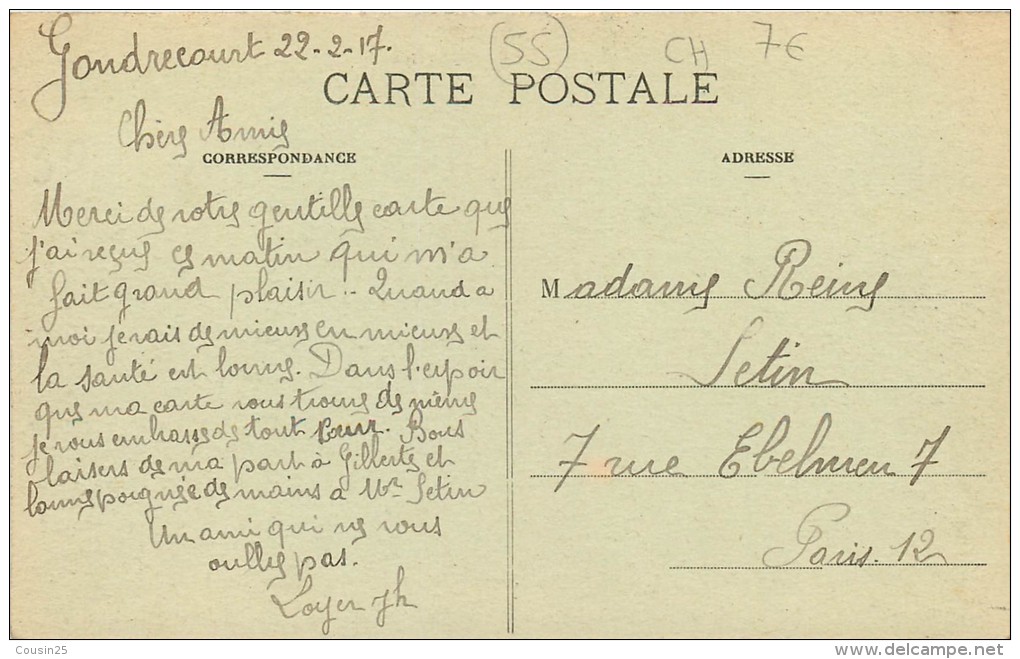 Gondrecourt 22-2-17.
(55)
CH
7€
CARTE POSTALE
Chers Amis
CORRESPONDANCE
ADRESSE
Merci de votre gentille carte que
j'ai reçue ce matin qui m'a
fait grand plaisir.. Quand a
moi je vais de mieux en mieux et
la santé est bonne. Dans l'espoir
que ma carte vous trouve de même
je vous embrasse de tout cœur. Bons
baisers de ma part à Gilberte et
bonne poignée de mains à Mr Setin
Un ami qui ne vous
oublie pas.
Loyer Jh
Madame Reine
Setin
7 rue Ebelmen 7
Paris. 12
Cousin25
www.delcampe.net